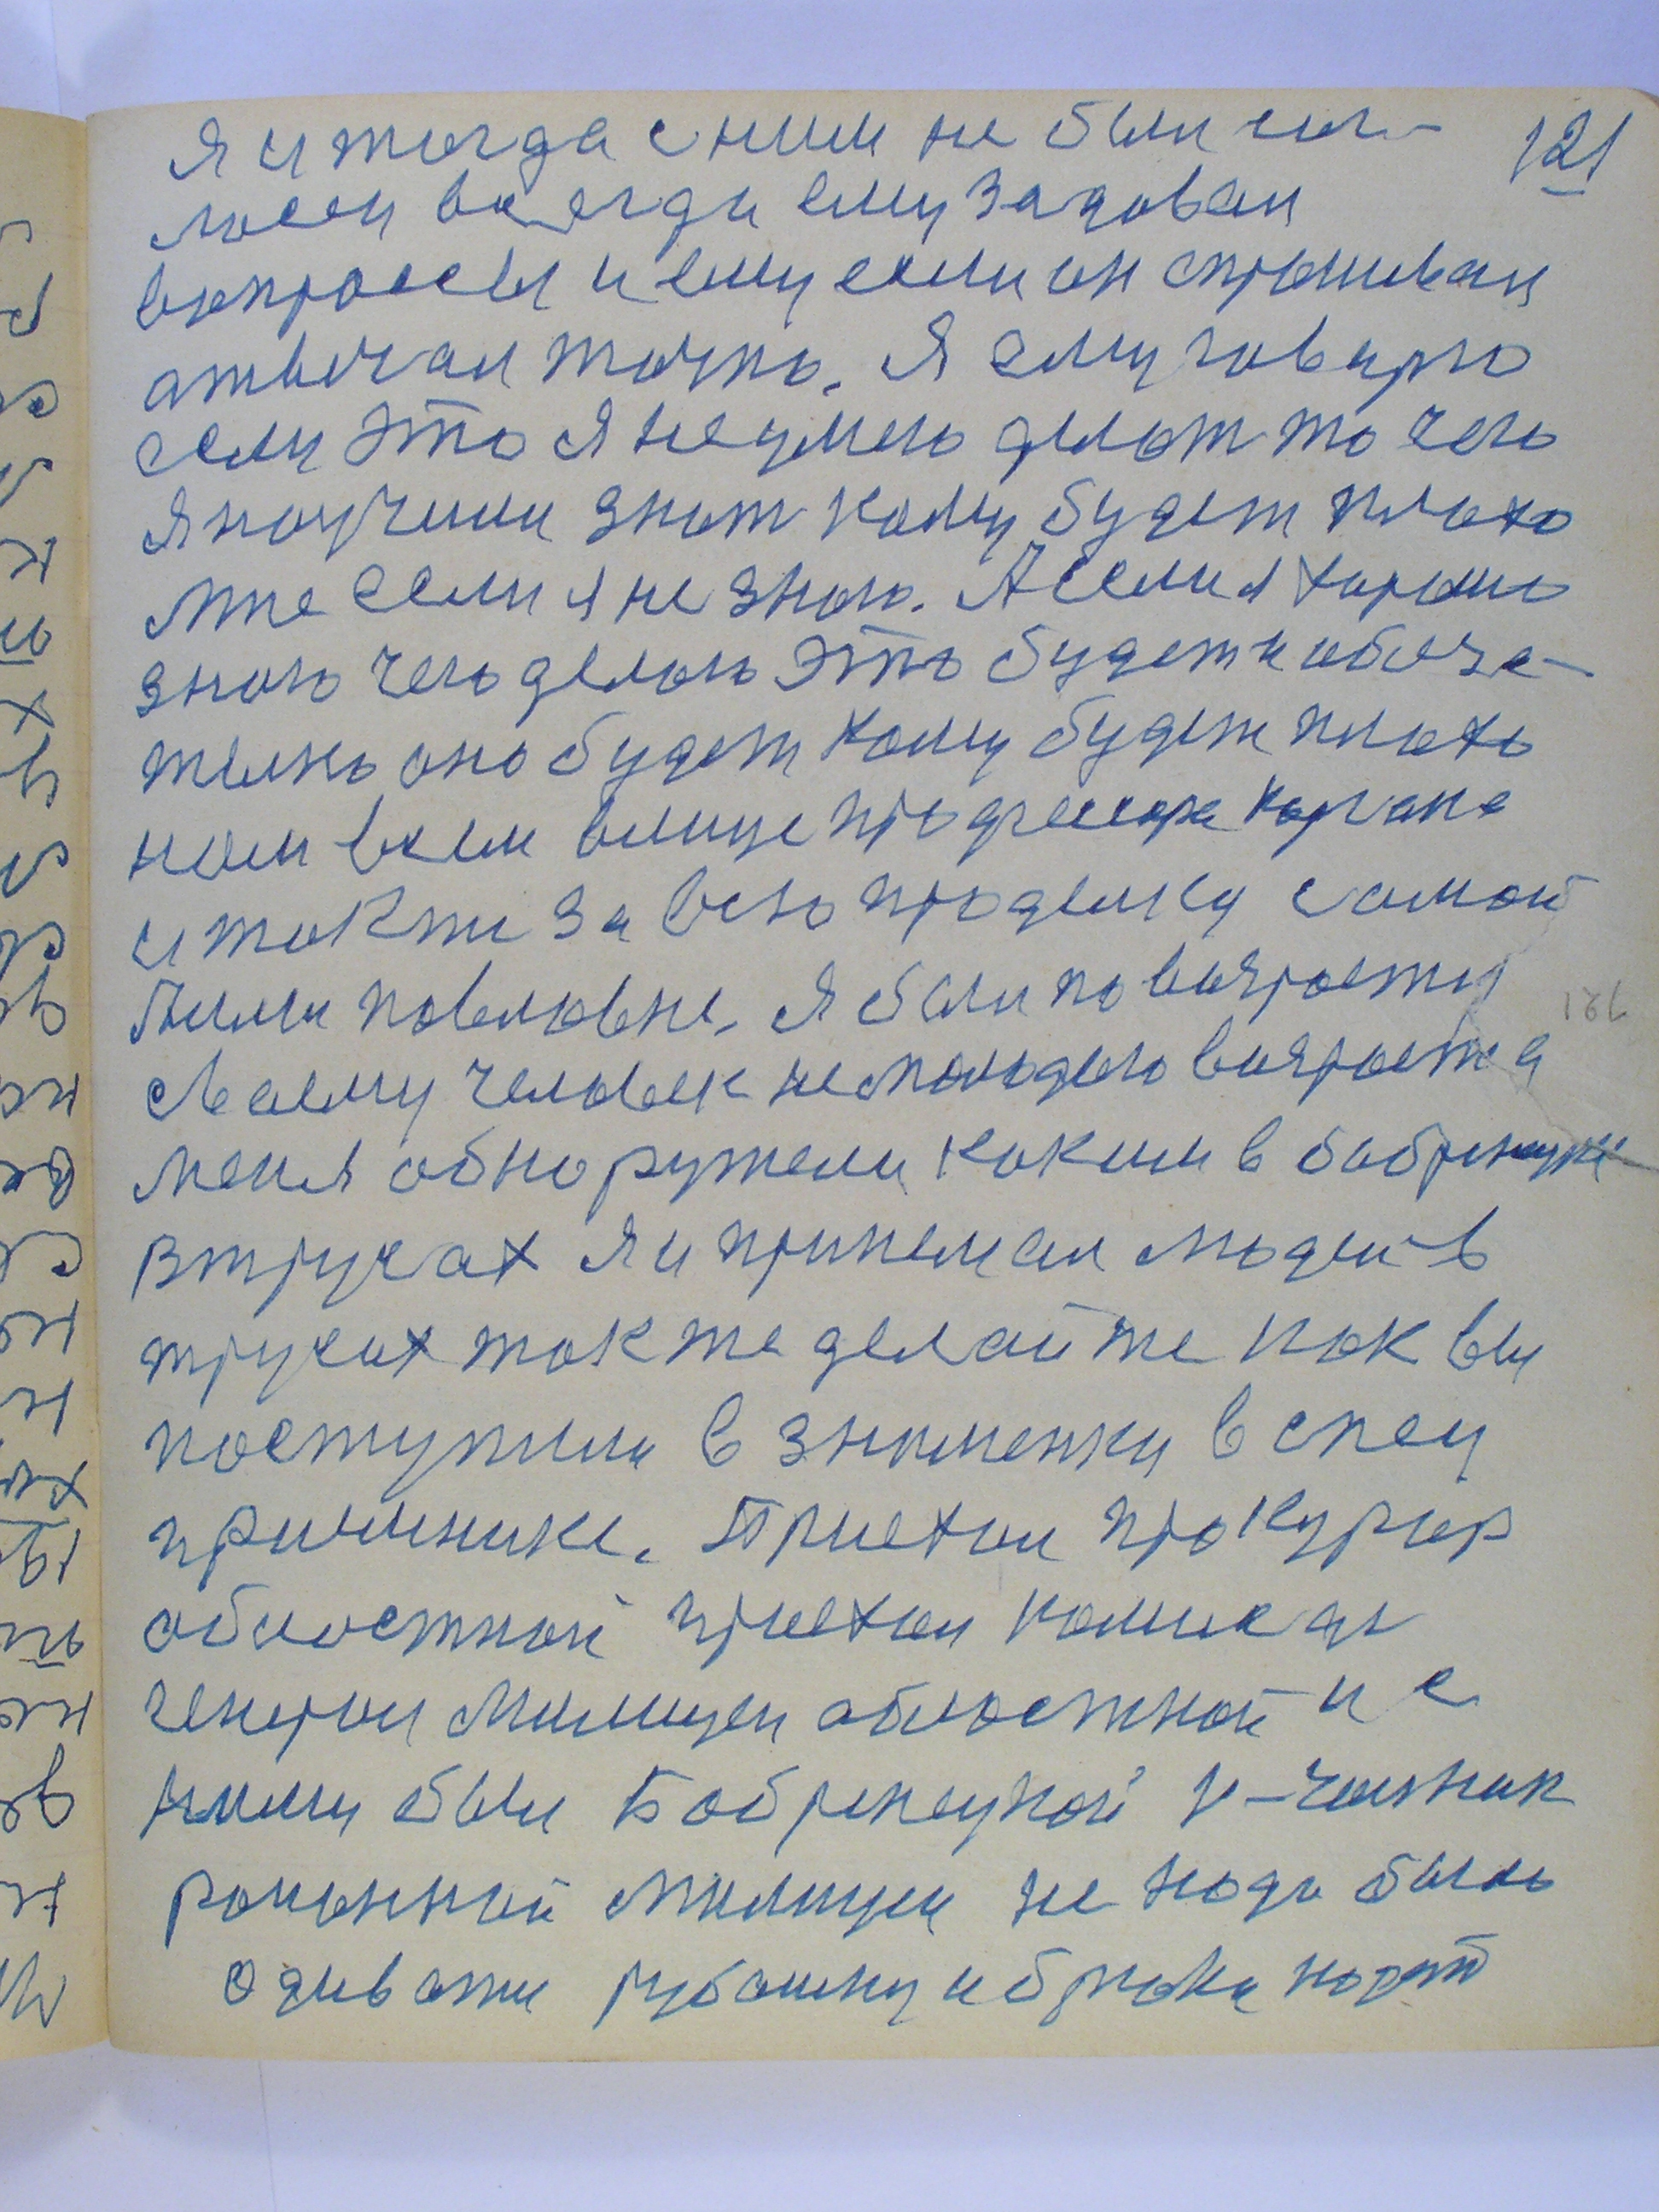 121
Я и тогда с ним не был сог-
ласен всегда ему задовал
вопроссы и ему если он спрашивал
атвичал точно. Я ему говорю
если это я не умею делат то чего
я научили знат кому будет плохо
мне если я не знаю. А если я хорошо
знаю чего делаю это будет и обяза-
тельно оно будет кому будет плохо
нам всем влице професора
и такти за всю проделку самой
повловне. Я был по возрасту
своему человек не молодого возроста
меня обноружели каким в бобринецке
втрусах я и принемал людей в
трусах так же делайте как вы
поступили в знаменки в спец
приемнике. Приехал прокурор
областной приехал
генерал милицеи областной и с
ними был Бобринецкой н-чальник
районной милицеи не надо было
одивати рубашку и брюки